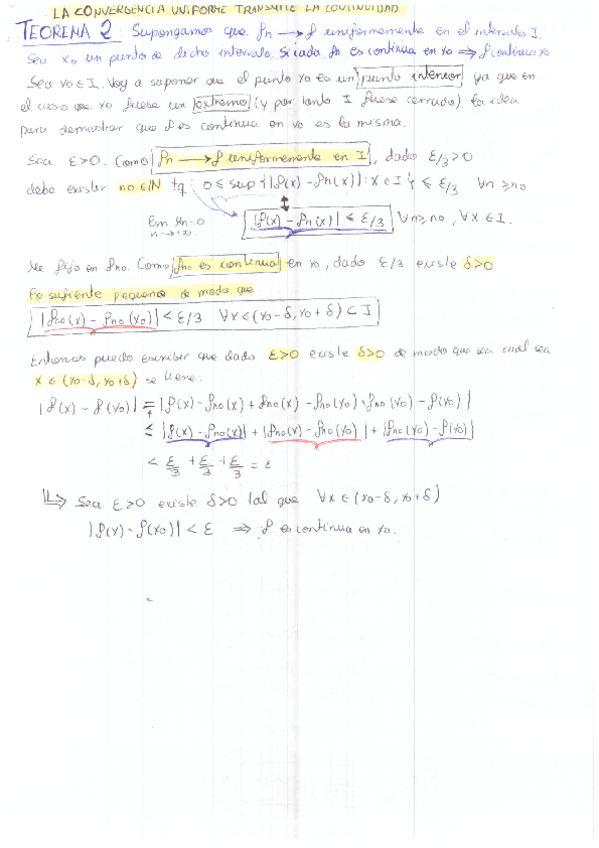 LA CONVERGENCIA UNIFORME TRANSMITE LA CONTINUIDAD
TEOREMA 2: Supongamos que fn → f uniformemente en el intervalo I.
Sea x0 un punto de dicho intervalo. Si cada fn es continua en x0 ⇒ f continua x0
Sea x0 ∈ I. Voy a suponer que el punto x0 es un punto interior ya que en
el caso que x0 fuese un extremo (y por tanto I fuese cerrado) la idea
para demostrar que f es continua en x0 es la misma.
Sea ε>0. Como fn → f uniformemente en I, dado ε/3>0
debe existir n0 ∈ ℕ tq 0 ≤ sup{|f(x) - fn(x)| : x ∈ I} ≤ ε/3 ∀n ≥ n0
lim Mn = 0
n→+∞
|f(x) - fn(x)| ≤ ε/3 ∀n ≥ n0, ∀x ∈ I.
Me fijo en fn0. Como fn0 es continua en x0, dado ε/3 existe δ>0
lo suficiente pequeño de modo que
|fn0(x) - fn0(x0)| < ε/3 ∀x ∈ (x0 - δ, x0 + δ) ⊂ I
Entonces puedo escribir que dado ε>0 existe δ>0 de modo que sea cual sea
x ∈ (x0-δ, x0+δ) se tiene:
|f(x) - f(x0)| = |f(x) - fn0(x) + fn0(x) - fn0(x0) + fn0(x0) - f(x0)|
≤ |f(x) - fn0(x)| + |fn0(x) - fn0(x0)| + |fn0(x0) - f(x0)|
< ε/3 + ε/3 + ε/3 = ε
⇒ Sea ε>0 existe δ>0 tal que ∀x ∈ (x0-δ, x0+δ)
|f(x) - f(x0)| < ε ⇒ f es continua en x0.